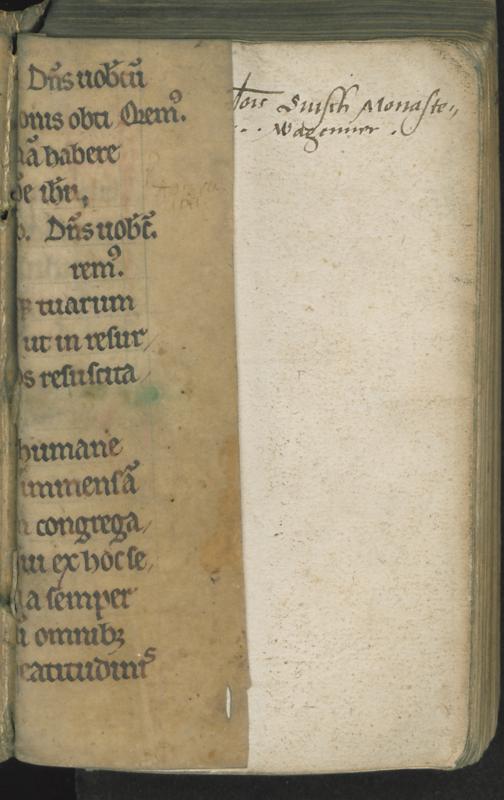 Dñs uobcũ
onus obti Orem⁹.
nã habere
de ihu,
o. Dñs uobc̃.
rem⁹.
tuarum
ut in resur
os resuscita
humane
inmensã
congrega
ui ex hoc se
a semper
omnibꝫ
eatitudinis
Suisch Monaste
Wagenner.